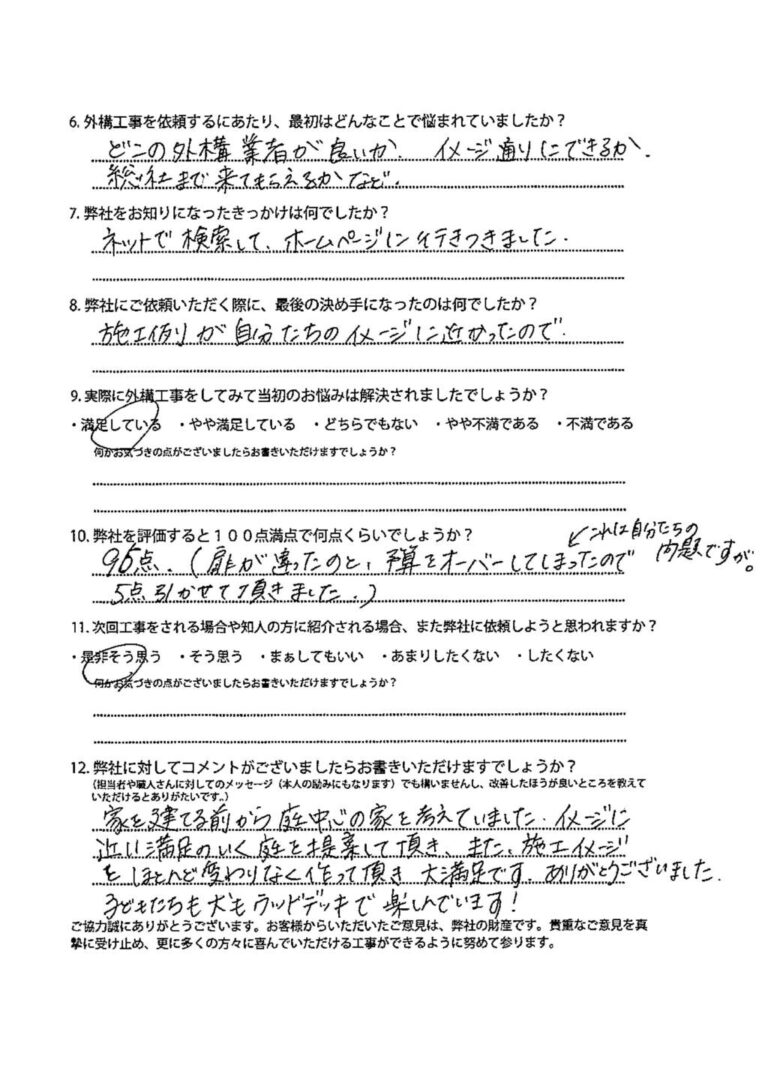 6. 外構工事を依頼するにあたり、最初はどんなことで悩まれていましたか？
どこの外構業者が良いか、イメージ通りにできるか、
総社まで来てもらえるかなど。
7. 弊社をお知りになったきっかけは何でしたか？
ネットで検索して、ホームページに行きつきました。
8. 弊社にご依頼いただく際に、最後の決め手になったのは何でしたか？
施工例が自分たちのイメージに近かったので。
9. 実際に外構工事をしてみて当初のお悩みは解決されましたでしょうか？
・満足している ・やや満足している ・どちらでもない ・やや不満である ・不満である
何かお気づきの点がございましたらお書きいただけますでしょうか？
10. 弊社を評価すると１００点満点で何点くらいでしょうか？
↙これは自分たちの
問題ですが。
95点。（扉が違ったのと、予算をオーバーしてしまったので
5点引かせて頂きました。）
11. 次回工事をされる場合や知人の方に紹介される場合、また弊社に依頼しようと思われますか？
・是非そう思う ・そう思う ・まぁしてもいい ・あまりしたくない ・したくない
何かお気づきの点がございましたらお書きいただけますでしょうか？
12. 弊社に対してコメントがございましたらお書きいただけますでしょうか？
（担当者や職人さんに対してのメッセージ（本人の励みにもなります）でも構いませんし、改善したほうが良いところを教えて
いただけるとありがたいです。）
家を建てる前から庭中心の家を考えていました。イメージに
近い満足のいく庭を提案して頂き、また、施工イメージ
をほとんど変わりなく作って頂き大満足です。ありがとうございました。
子どもたちも犬もウッドデッキで楽しんでいます！
ご協力誠にありがとうございます。お客様からいただいたご意見は、弊社の財産です。貴重なご意見を真
摯に受け止め、更に多くの方々に喜んでいただける工事ができるように努めて参ります。